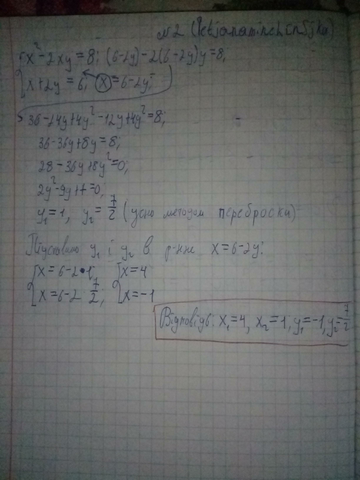 N2
x²-2xy=8; (6-2y)-2(6-2y)y=8,
x+2y=6; x=6-2y;
36-24y+4y²-12y+4y²=8;
36-36y+8y=8;
28-36y+8y²=0;
2y²-9y+7=0;
y₁=1, y₂=7/2 (усно методом переброски)
Підставимо y₁ і y₂ в р-нне x=6-2y:
x=6-2•1, x=4
x=6-2 7/2, x=-1
Відповідь: x₁=4, x₂=1, y₁=-1, y₂=7/2